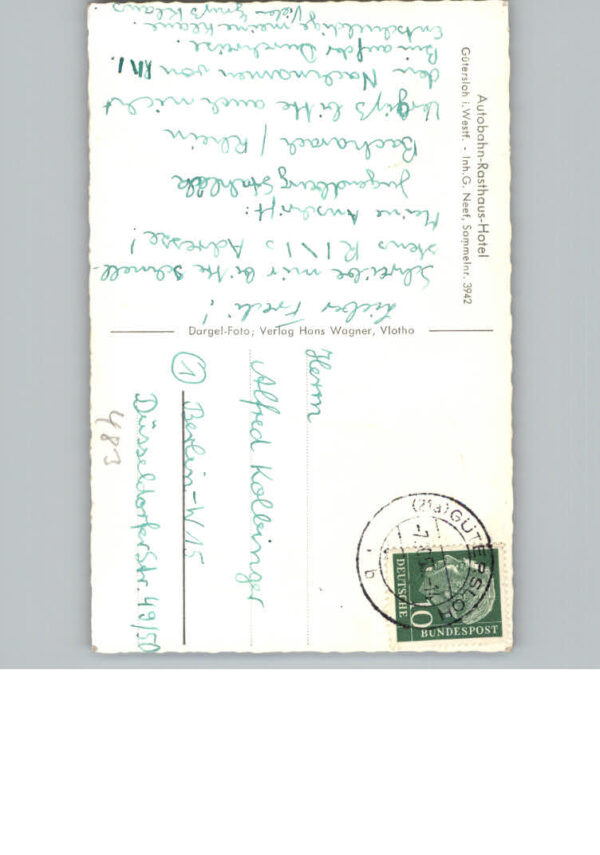 Autobahn-Rasthaus-Hotel
Gütersloh i. Westf. - Inh. G. Neef, Sammelnr. 3942
Dargel-Foto; Verlag Hans Wagner, Vlotho
Lieber Fredi!
Schreibe mir bitte schnell-
stens RINIs Adresse!
Meine Anschrift:
Jugendburg Stahleck
Bacharach / Rhein
Vergiß bitte auch nicht
den Nachnamen von RINI.
Bin auf der Durchreise.
Entschuldige meine Klaue.
Viele Grüße Klaus
Herrn
Alfred Kolbinger
① Berlin-W 15
Düsseldorferstr. 49/50
483
(21a) GÜTERSLOH
DEUTSCHE
BUNDESPOST
10